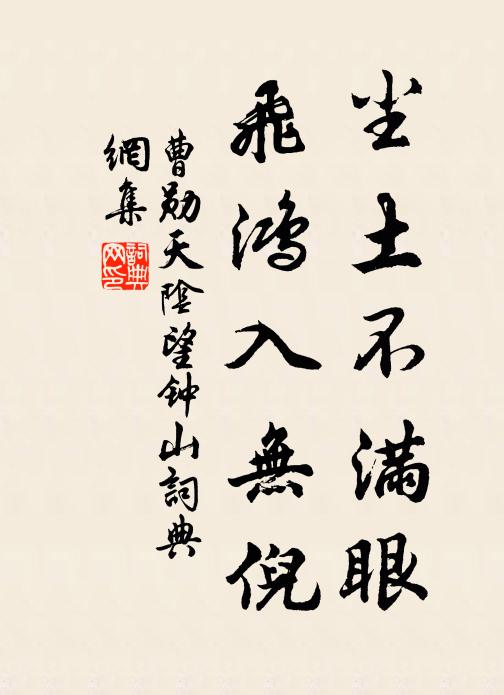 尘土不滿眼
飛鴻入無倪
曹勛天陰望钟山詞典
網集
詞典網印